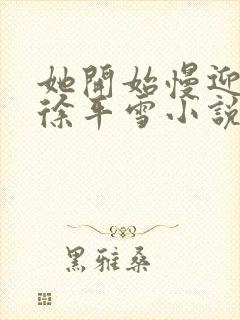 她開始慢迎
徐平雪小說
黑雅桑